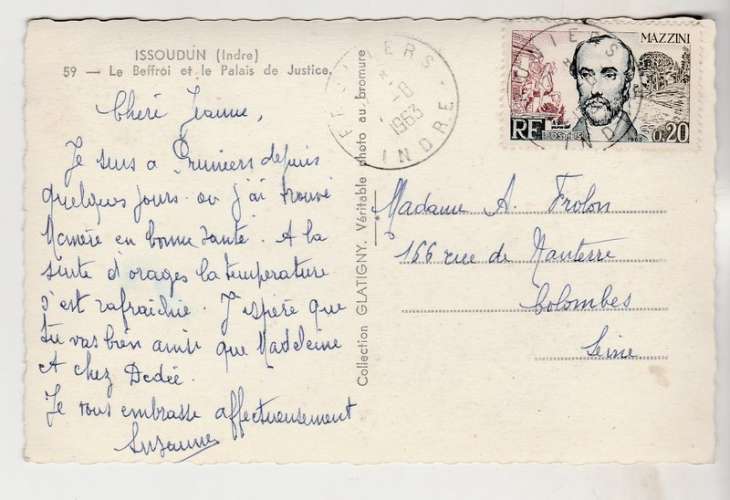 ISSOUDUN (Indre)
59 — Le Beffroi et le Palais de Justice.
Chère Jeanne,
Je suis a Pruniers depuis
quelques jours ou j'ai trouvé
Mémère en bonne santé. A la
suite d'orages la température
s'est rafraichie. J'espère que
tu vas bien ainsi que Madeleine
et chez Dédée.
Je vous embrasse affectueusement
Suzanne
Collection GLATIGNY. Véritable photo au bromure
PRUNIERS
-8
1963
INDRE
MAZZINI
RF
POSTES
1963
0,20
Madame A. Frolon
166 rue de Nanterre
Colombes
Seine